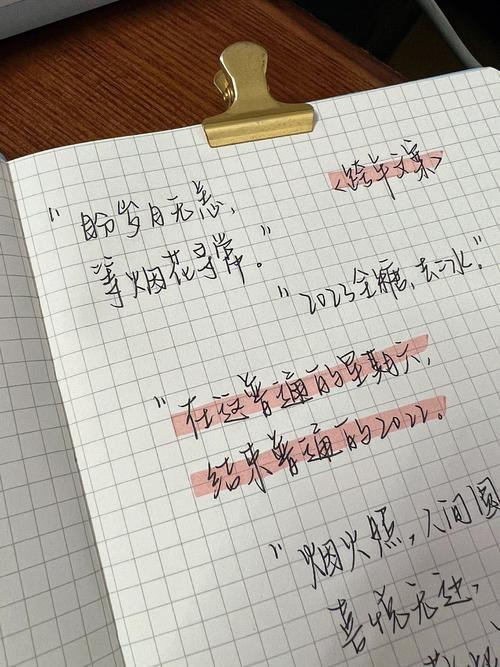 <跨年文案>
"盼岁月无恙，
等烟花寻常。"
"2023全糖，去冰。"
"在这普通的星期六，
结束普通的2022。
"烟火照，人间圆
喜悦无边，